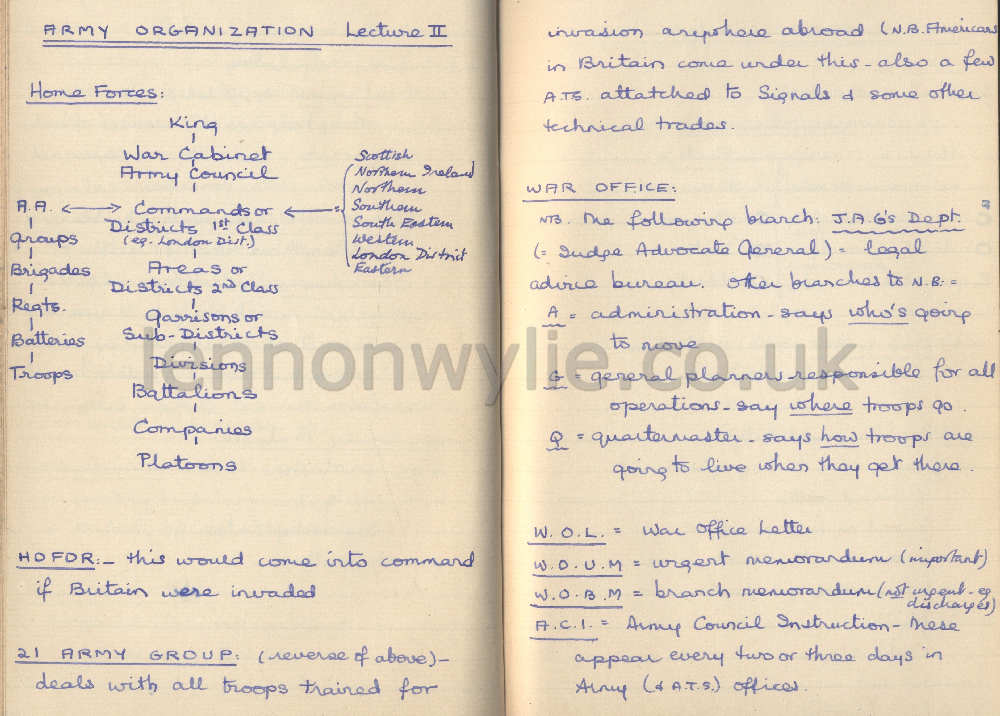 ARMY ORGANIZATION Lecture II
Home Forces:
King
War Cabinet
Army Council
A.A. ⟷ Commands or ⟵ =
Districts 1st Class
(eg. London Dist.)
Areas or
Districts 2nd Class
Garrisons or
Sub-Districts
Divisions
Battalions
Companies
Platoons
Groups
Brigades
Regts.
Batteries
Troops
Scottish
Northern Ireland
Northern
Southern
South Eastern
Western
London District
Eastern
HOFOR:- this would come into command
if Britain were invaded
21 ARMY GROUP: (reverse of above) -
deals with all troops trained for
invasion anywhere abroad (N.B. Americans
in Britain come under this - also a few
A.T.S. attatched to Signals & some other
technical trades.
WAR OFFICE:
NB. The following branch: J.A.G's Dept.
(= Judge Advocate General) = legal
advice bureau. Other branches to N.B: =
A = administration - says who's going
to move
G = general planners responsible for all
operations - say where troops go.
Q = quartermaster - says how troops are
going to live when they get there.
W.O.L. = War Office Letter
W.O.U.M = urgent memorandum (important)
W.O.B.M = branch memorandum (not urgent - eg
discharges)
A.C.I. = Army Council Instruction - these
appear every two or three days in
Army (& A.T.S.) offices.
lennonwylie.co.uk